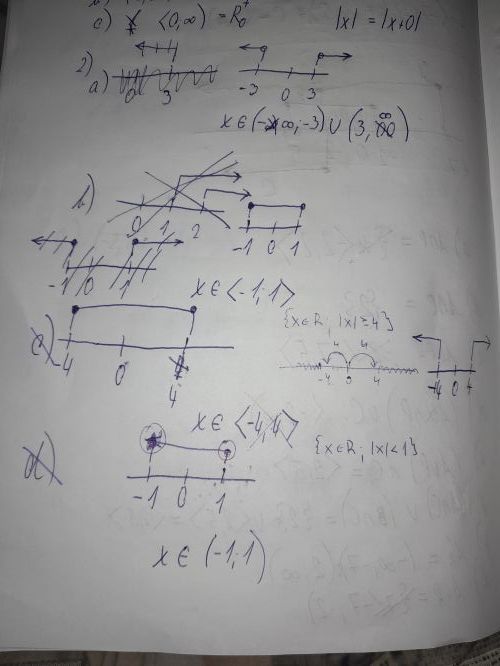 c) ⟨0,∞) = R₀⁺
|x| = |x+0|
2)
a)
0 3
-3 0 3
x ∈ (-∞,-3) ∪ (3,∞)
b)
0 1 2
-1 0 1
-1 0 1
x ∈ ⟨-1;1⟩
c)
-4 0 4
{x∈R; |x|≥4}
4 4
-4 0 4
-4 0 4
x ∈ ⟨-4,4⟩
d)
{x∈R; |x|<1}
-1 0 1
x ∈ (-1;1)